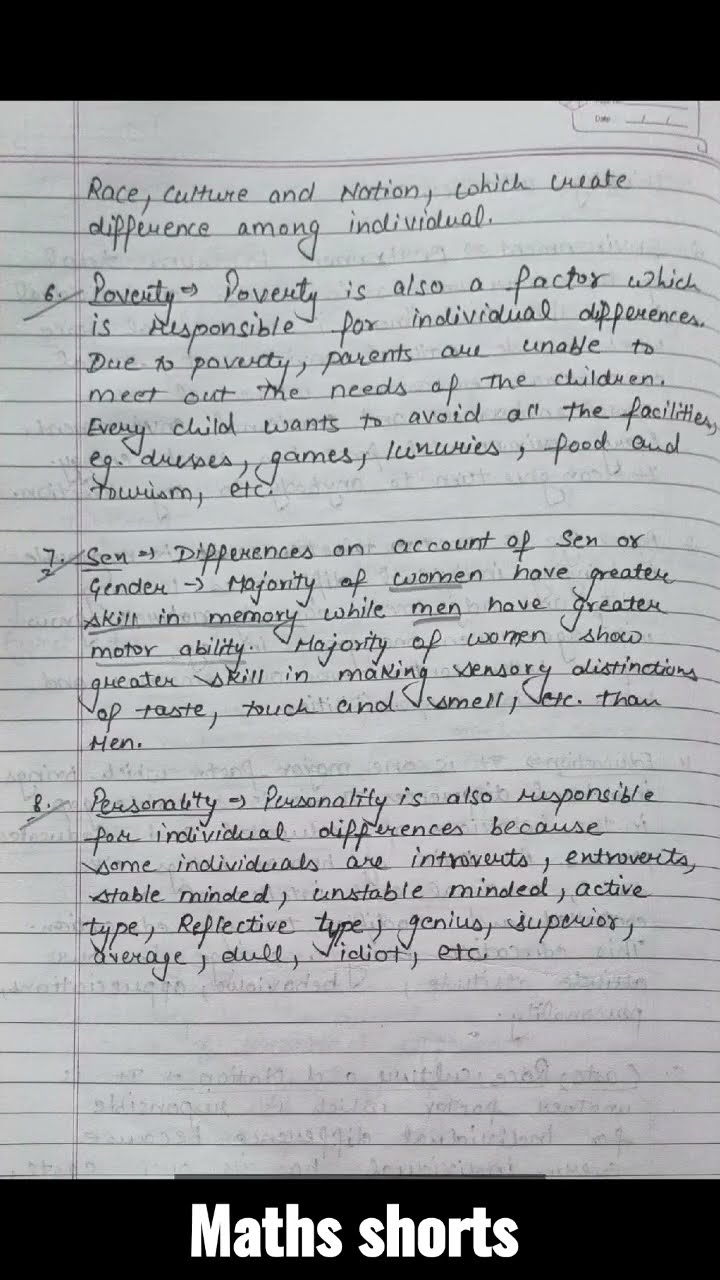 Date / /
Race, culture and Nation, which create
difference among individual.
6. Poverty → Poverty is also a factor which
is responsible for individual differences.
Due to poverty, parents are unable to
meet out the needs of the children.
Every child wants to avoid all the facilities,
eg. dresses, games, luxuries, food and
tourism, etc.
7. Sex → Differences on account of Sex or
Gender → Majority of women have greater
skill in memory while men have greater
motor ability. Majority of women show
greater skill in making sensory distinctions
of taste, touch and smell, etc. than
Men.
8. Personality → Personality is also responsible
for individual differences because
some individuals are introverts, extroverts,
stable minded, unstable minded, active
type, Reflective type, genius, superior,
average, dull, idiot, etc.
Maths shorts